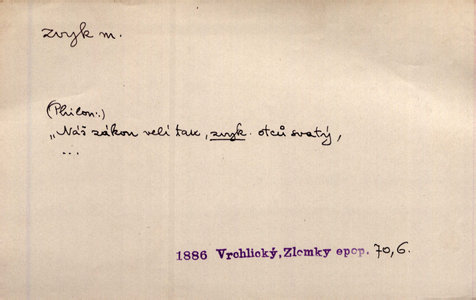 zvyk m.
(Philon:)
„Náš zákon velí tak, zvyk otců svatý,
...
1886 Vrchlický, Zlomky epop. 70,6.